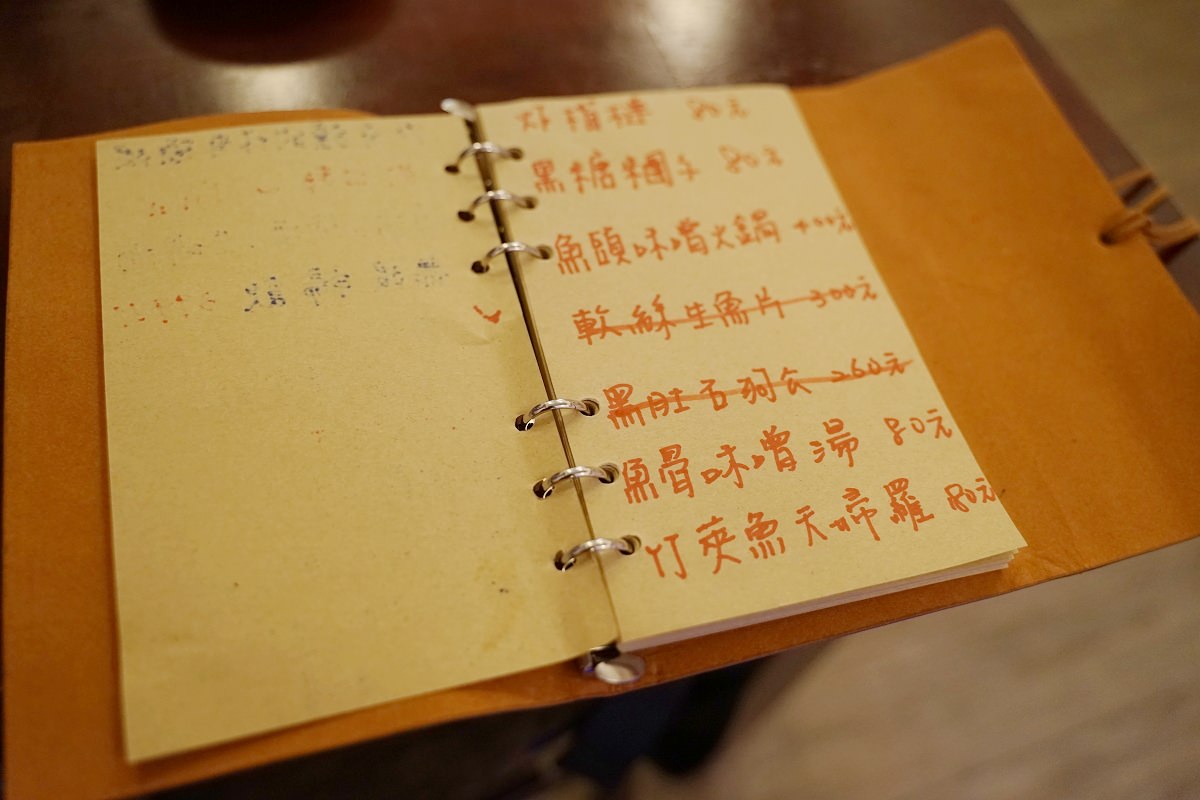 80元
黑糖糰子 80元
魚頭味噌火鍋 400元
軟絲生魚片 300元
黑肚石狗公 260元
魚骨味噌湯 80元
竹莢魚天婦羅 80元